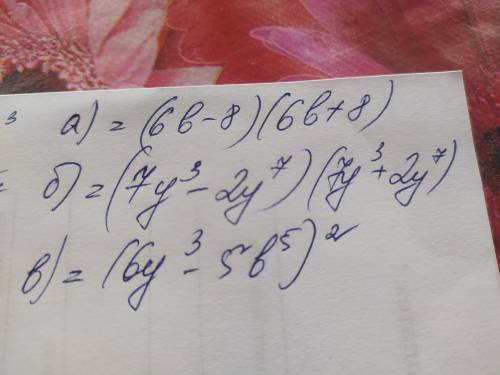 ³ а) = (6в-8)(6в+8)
б) = (7y³ - 2y⁷)(7y³ + 2y⁷)
в) = (6y³ - 5в⁵)²